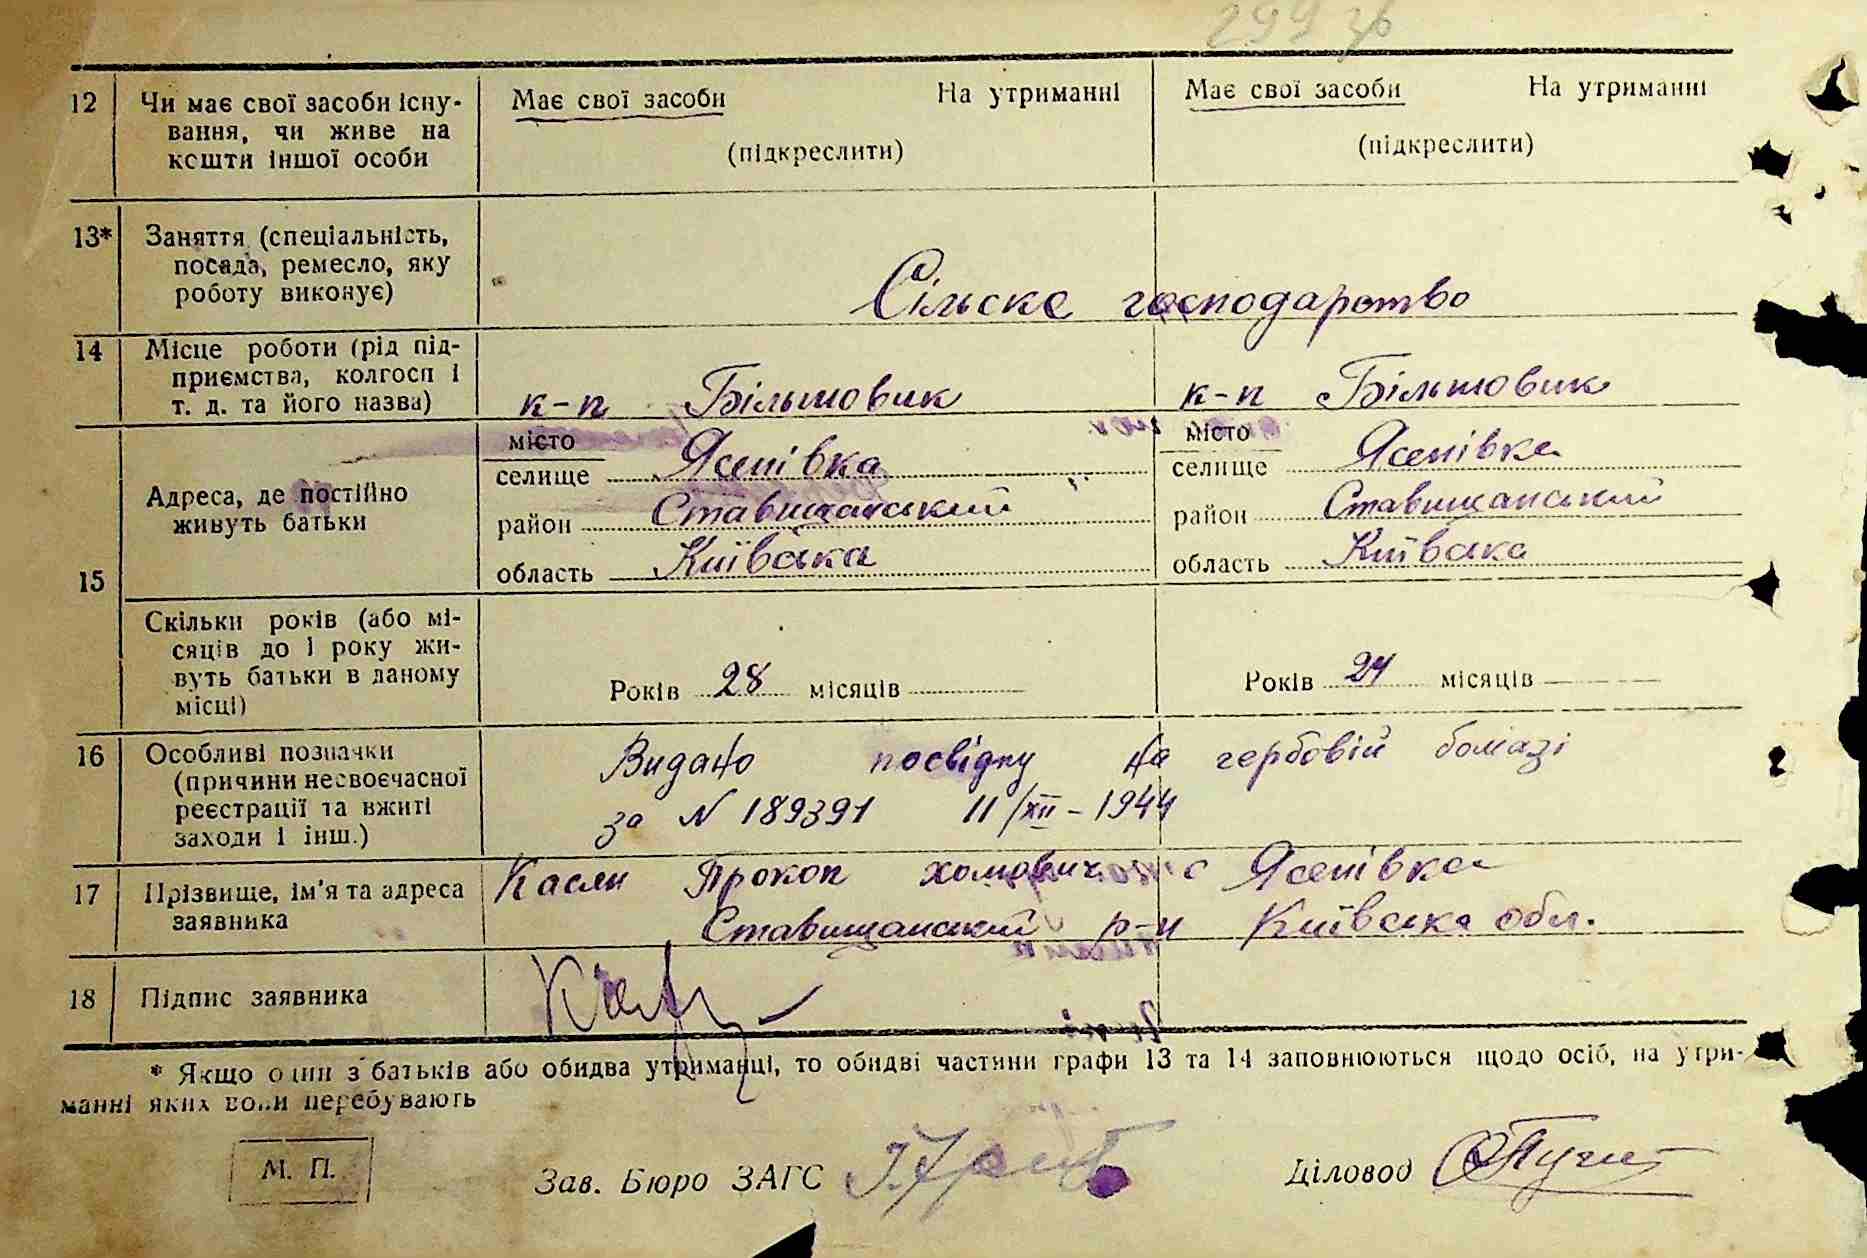 299 зв
12 Чи має свої засоби існу-
вання, чи живе на
кошти іншої особи
Має свої засоби На утриманні
(підкреслити)
Має свої засоби На утриманні
(підкреслити)
13* Заняття (спеціальність,
посада, ремесло, яку
роботу виконує)
Сільске господарство
14 Місце роботи (рід під-
приємства, колгосп і
т. д. та його назва)
к-п Більшовик
к-п Більшовик
15
Адреса, де постійно
живуть батьки
місто
селище Ясенівка
район Ставищанський
область Київська
місто
селище Ясенівка
район Ставищанський
область Київська
Скільки років (або мі-
сяців до 1 року жи-
вуть батьки в даному
місці)
Років 28 місяців
Років 24 місяців
16 Особливі позначки
(причини несвоєчасної
реєстрації та вжиті
заходи і інш.)
Видано посвідку на гербовій бомазі
за N 189391 11/XII-1944
17 Прізвище, ім'я та адреса
заявника
Касли Прокоп хомович с Ясенівка
Ставищанський р-н Київська обл.
18 Підпис заявника
* Якщо один з батьків або обидва утриманці, то обидві частини графи 13 та 14 заповнюються щодо осіб, на утри-
манні яких вони перебувають
М. П.
Зав. Бюро ЗАГС
Діловод